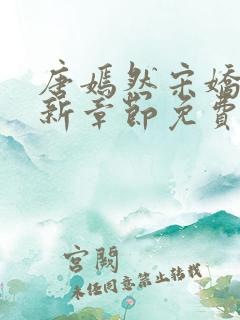 唐嫣然宋嬌
新章節免費
宮闕
未经同意禁止转载